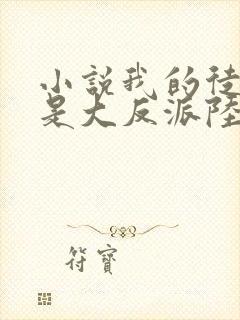 小說我的徒
是大反派陸
符寶